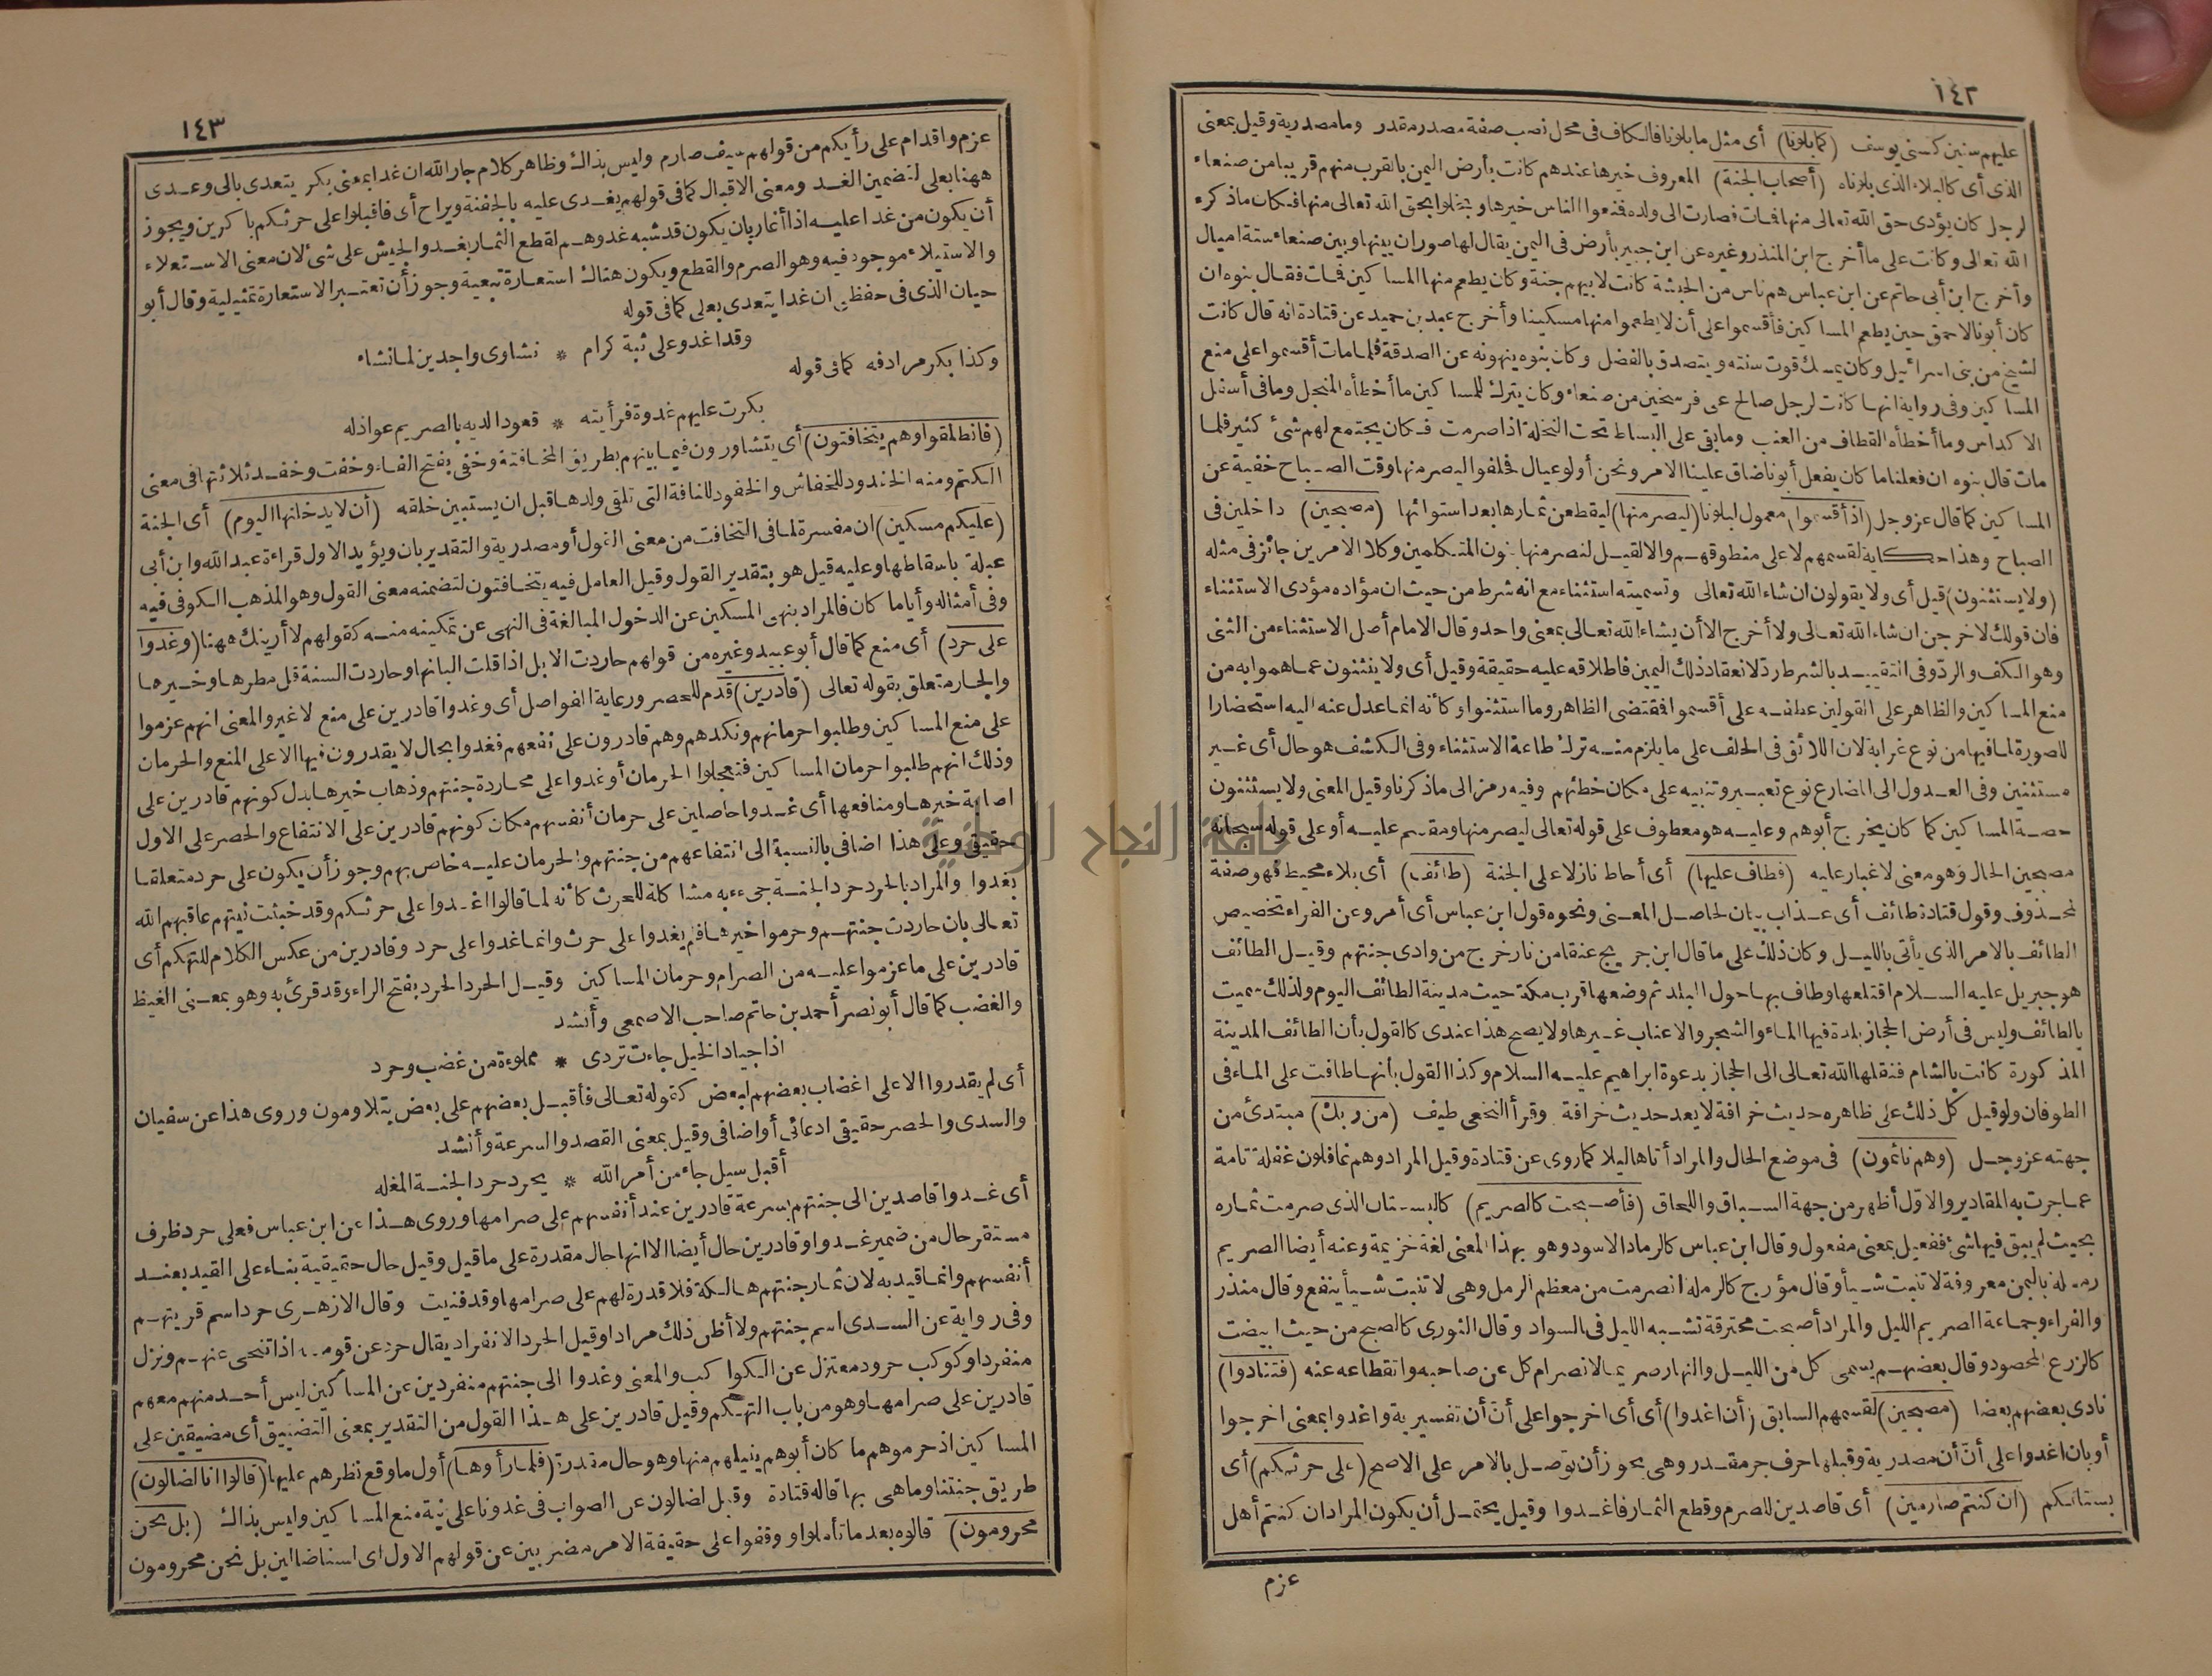 ١٤٢
عليهم سنين كسنى يوسف (كما بلونا) أى مثل ما بلونا فالكاف فى محل نصب صفة مصدر مقدر وما مصدرية وقيل بمعنى
الذى أى كالبلاء الذى بلوناه (أصحاب الجنة) المعروف خبرها عندهم كانت بأرض اليمن بالقرب منهم قريبا من صنعاء
لرجل كان يؤدى حق الله تعالى منها فمات فصارت الى ولده فمنعوا الناس خيرها وبخلوا بحق الله تعالى منها فكان ما ذكره
الله تعالى وكانت على ما أخرج ابن المنذر وغيره عن ابن جبير بأرض فى اليمن يقال لها صوران بينها وبين صنعاء ستة اميال
وأخرج ابن أبى حاتم عن ابن عباس هم ناس من الحبشة كانت لابيهم جنة وكان يطعم منها المساكين فمات فقال بنوه ان
كان أبونا لاحمق حين يطعم المساكين فأقسموا على أن لا يطعموا منها مسكينا وأخرج عبد بن حميد عن قتادة انه قال كانت
لشيخ من بنى اسرائيل وكان يمسك قوت سنته ويتصدق بالفضل وكان بنوه ينهونه عن الصدقة فلما مات أقسموا على منع
المساكين وفى رواية انها كانت لرجل صالح على فرسخين من صنعاء وكان يترك للمساكين ما أخطأه المنجل وما فى أسفل
الاكداس وما أخطأه القطاف من العنب وما بقى على البساط تحت النخلة اذا صرمت فكان يجتمع لهم شئ كثير فلما
مات قال بنوه ان فعلنا ما كان يفعل أبونا ضاق علينا الامر ونحن أولو عيال فحلفوا ليصرمنها وقت الصباح خفية عن
المساكين كما قال عز وجل (اذ أقسموا) معمول لبلونا (ليصرمنها) ليقطعن ثمارها بعد استوائها (مصبحين) داخلين فى
الصباح وهذا حكاية لقسمهم لا على منطوقهم والا لقيل لنصرمنها بنون المتكلمين وكلا الامرين جائز فى مثله
(ولا يستثنون) قيل أى ولا يقولون ان شاء الله تعالى وتسميته استثناء مع انه شرط من حيث ان مؤداه مؤدى الاستثناء
فان قولك لاخرجن ان شاء الله تعالى ولا أخرج الا أن يشاء الله تعالى بمعنى واحد وقال الامام أصل الاستثناء من الثنى
وهو الكف والرد وفى التقييد بالشرط رد لانعقاد ذلك اليمين فاطلاقه عليه حقيقة وقيل أى ولا ينثنون عما هموا به من
منع المساكين والظاهر على القولين عطفه على أقسموا فمقتضى الظاهر وما استثنوا وكأنه انما عدل عنه اليه استحضارا
للصورة لما فيها من نوع غرابة لان اللائق فى الحلف على ما يلزم منه ترك طاعة الاستثناء وفى الكشف هو حال أى غير
مستثنين وفى العدول الى المضارع نوع تعبير وتنبيه على مكان خطئهم وفيه رمز الى ما ذكرنا وقيل المعنى ولا يستثنون
حصة المساكين كما كان يخرج أبوهم وعليه هو معطوف على قوله تعالى ليصرمنها ومقسم عليه أو على قوله سبحانه
مصبحين الحال وهو معنى لا غبار عليه (فطاف عليها) أى أحاط نازلا على الجنة (طائف) أى بلاء محيط فهو صفة
لمحذوف وقول قتادة طائف أى عذاب بيان لحاصل المعنى ونحوه قول ابن عباس أى أمر وعن الفراء تخصيص
الطائف بالامر الذى يأتى بالليل وكان ذلك على ما قال ابن جريج عنقا من نار خرج من وادى جنتهم وقيل الطائف
هو جبريل عليه السلام اقتلعها وطاف بها حول البلد ثم وضعها قرب مكة حيث مدينة الطائف اليوم ولذلك سميت
بالطائف وليس فى أرض الحجاز بلدة فيها الماء والشجر والاعناب غيرها ولا يصح هذا عندى كالقول بأن الطائف المدينة
المذكورة كانت بالشام فنقلها الله تعالى الى الحجاز بدعوة ابراهيم عليه السلام وكذا القول بأنها طافت على الماء فى
الطوفان ولو قيل كل ذلك على ظاهره حديث خرافة لا يعد حديث خرافة وقرأ النخعى طيف (من ربك) مبتدئ من
جهته عز وجل (وهم نائمون) فى موضع الحال والمراد أتاها ليلا كما روى عن قتادة وقيل المراد وهم غافلون غفلة تامة
عما جرت به المقادير والاول أظهر من جهة السباق واللحاق (فأصبحت كالصريم) كالبستان الذى صرمت ثماره
بحيث لم يبق فيها شئ ففعيل بمعنى مفعول وقال ابن عباس كالرماد الاسود وهو بهذا المعنى لغة خزيمة وعنه أيضا الصريم
رملة باليمن معروفة لا تنبت شيأ وقال مؤرج كالرملة انصرمت من معظم الرمل وهى لا تنبت شيأ ينفع وقال منذر
والفراء وجماعة الصريم الليل والمراد أصبحت محترقة تشبه الليل فى السواد وقال الثورى كالصبح من حيث ابيضت
كالزرع المحصود وقال بعضهم يسمى كل من الليل والنهار صريما لانصرام كل عن صاحبه وانقطاعه عنه (فتنادوا)
نادى بعضهم بعضا (مصبحين) لقسمهم السابق (أن اغدوا) أى أى اخرجوا على أن أن تفسيرية واغدوا بمعنى اخرجوا
أو بان اغدوا على أن أن مصدرية وقبلها حرف جر مقدر وهى يجوز أن توصل بالامر على الاصح (على حرثكم) أى
بستانكم (ان كنتم صارمين) أى قاصدين للصرم وقطع الثمار فاغدوا وقيل يحتمل أن يكون المراد ان كنتم أهل
عزم
١٤٣
عزم واقدام على رأيكم من قولهم سيف صارم وليس بذاك وظاهر كلام جار الله ان غدا بمعنى بكر يتعدى بالى وعدى
ههنا بعلى لتضمين الغد ومعنى الاقبال كما فى قولهم يغدى عليه بالجفنة ويراح أى فاقبلوا على حرثكم باكرين ويجوز
أن يكون من غدا عليه اذا أغار بان يكون قد شبه غدوهم لقطع الثمار بغدو الجيش على شئ لان معنى الاستعلاء
والاستيلاء موجود فيه وهو الصرم والقطع ويكون هناك استعارة تبعية وجوز أن تعتبر الاستعارة تمثيلية وقال أبو
حيان الذى فى حفظى ان غدا يتعدى بعلى كما فى قوله
وقد اغدو على ثبة كرام * نشاوى واجدين لما نشاء
وكذا بكر مرادفه كما فى قوله
بكرت عليهم غدوة فرأيته * قعودا لديه بالصريم عواذله
(فانطلقوا وهم يتخافتون) أى يتشاورون فيما بينهم بطريق المخافتة وخفى بفتح الفاء وخفت وخفد ثلاثتها فى معنى
الكتم ومنه الخفدود للخفاش والخفود للناقة التى تلقى ولدها قبل ان يستبين خلقه (أن لا يدخلنها اليوم) أى الجنة
(عليكم مسكين) ان مفسرة لما فى التخافت من معنى القول أو مصدرية والتقدير بان ويؤيد الاول قراءة عبد الله وابن أبى
عبلة باسقاطها وعليه قيل هو بتقدير القول وقيل العامل فيه يتخافتون لتضمنه معنى القول وهو المذهب الكوفى فيه
وفى أمثاله وأيا ما كان فالمراد بنهى المسكين عن الدخول المبالغة فى النهى عن تمكينه منه كقولهم لا أرينك ههنا (وغدوا
على حرد) أى منع كما قال أبو عبيد وغيره من قولهم حاردت الابل اذا قلت البانها وحاردت السنة قل مطرها وخيرها
والجار متعلق بقوله تعالى (قادرين) قدم للحصر ورعاية الفواصل أى وغدوا قادرين على منع لا غير والمعنى انهم عزموا
على منع المساكين وطلبوا حرمانهم ونكدهم وهم قادرون على نفعهم فغدوا بحال لا يقدرون فيها الا على المنع والحرمان
وذلك انهم طلبوا حرمان المساكين فتعجلوا الحرمان أو غدوا على محاردة جنتهم وذهاب خيرها بدل كونهم قادرين على
اصابة خيرها ومنافعها أى غدوا حاصلين على حرمان أنفسهم مكان كونهم قادرين على الانتفاع والحصر على الاول
حقيقى وعلى هذا اضافى بالنسبة الى انتفاعهم من جنتهم والحرمان عليه خاص بهم وجوز أن يكون على حرد متعلقا
بغدوا والمراد بالحرد حرد الجنة جىء به مشاكلة للحرث كأنه لما قالوا اغدوا على حرثكم وقد خبثت نيتهم عاقبهم الله
تعالى بان حاردت جنتهم وحرموا خيرها فلم يغدوا على حرث وانما غدوا على حرد وقادرين من عكس الكلام للتهكم أى
قادرين على ما عزموا عليه من الصرام وحرمان المساكين وقيل الحرد الحرد بفتح الراء وقد قرئ به وهو بمعنى الغيظ
والغضب كما قال أبو نصر أحمد بن حاتم صاحب الاصمعى وأنشد
اذا جياد الخيل جاءت تردى * مملوءة من غضب وحرد
أى لم يقدروا الا على اغضاب بعضهم لبعض كقوله تعالى فأقبل بعضهم على بعض يتلاومون وروى هذا عن سفيان
والسدى والحصر حقيقى ادعائى أو اضافى وقيل بمعنى القصد والسرعة وأنشد
أقبل سيل جاء من أمر الله * يحرد حرد الجنة المغله
أى غدوا قاصدين الى جنتهم بسرعة قادرين عند أنفسهم على صرامها وروى هذا عن ابن عباس فعلى حرد ظرف
مستقر حال من ضمير غدوا وقادرين حال أيضا الا انها حال مقدرة على ما قيل وقيل حال حقيقية بناء على القيد بعند
أنفسهم وانما قيد به لان ثمار جنتهم هالكة فلا قدرة لهم على صرامها وقد فنيت وقال الازهرى حرد اسم قريتهم
وفى رواية عن السدى اسم جنتهم ولا أظن ذلك مرادا وقيل الحرد الانفراد يقال حرد عن قومه اذا تنحى عنهم ونزل
منفردا وكوكب حرود معتزل عن الكواكب والمعنى وغدوا الى جنتهم منفردين عن المساكين ليس أحد منهم معهم
قادرين على صرامها وهو من باب التهكم وقيل قادرين على هذا القول من التقدير بمعنى التضييق أى مضيقين على
المساكين اذ حرموهم ما كان أبوهم ينيلهم منها وهو حال مقدرة (فلما رأوها) أول ما وقع نظرهم عليها (قالوا انا لضالون)
طريق جنتنا وما هى بها قاله قتادة وقيل لضالون عن الصواب فى غدونا على نية منع المساكين وليس بذاك (بل نحن
محرومون) قالوه بعد ما تأملوا ووقفوا على حقيقة الامر مضربين عن قولهم الاول أى لسنا ضالين بل نحن محرومون